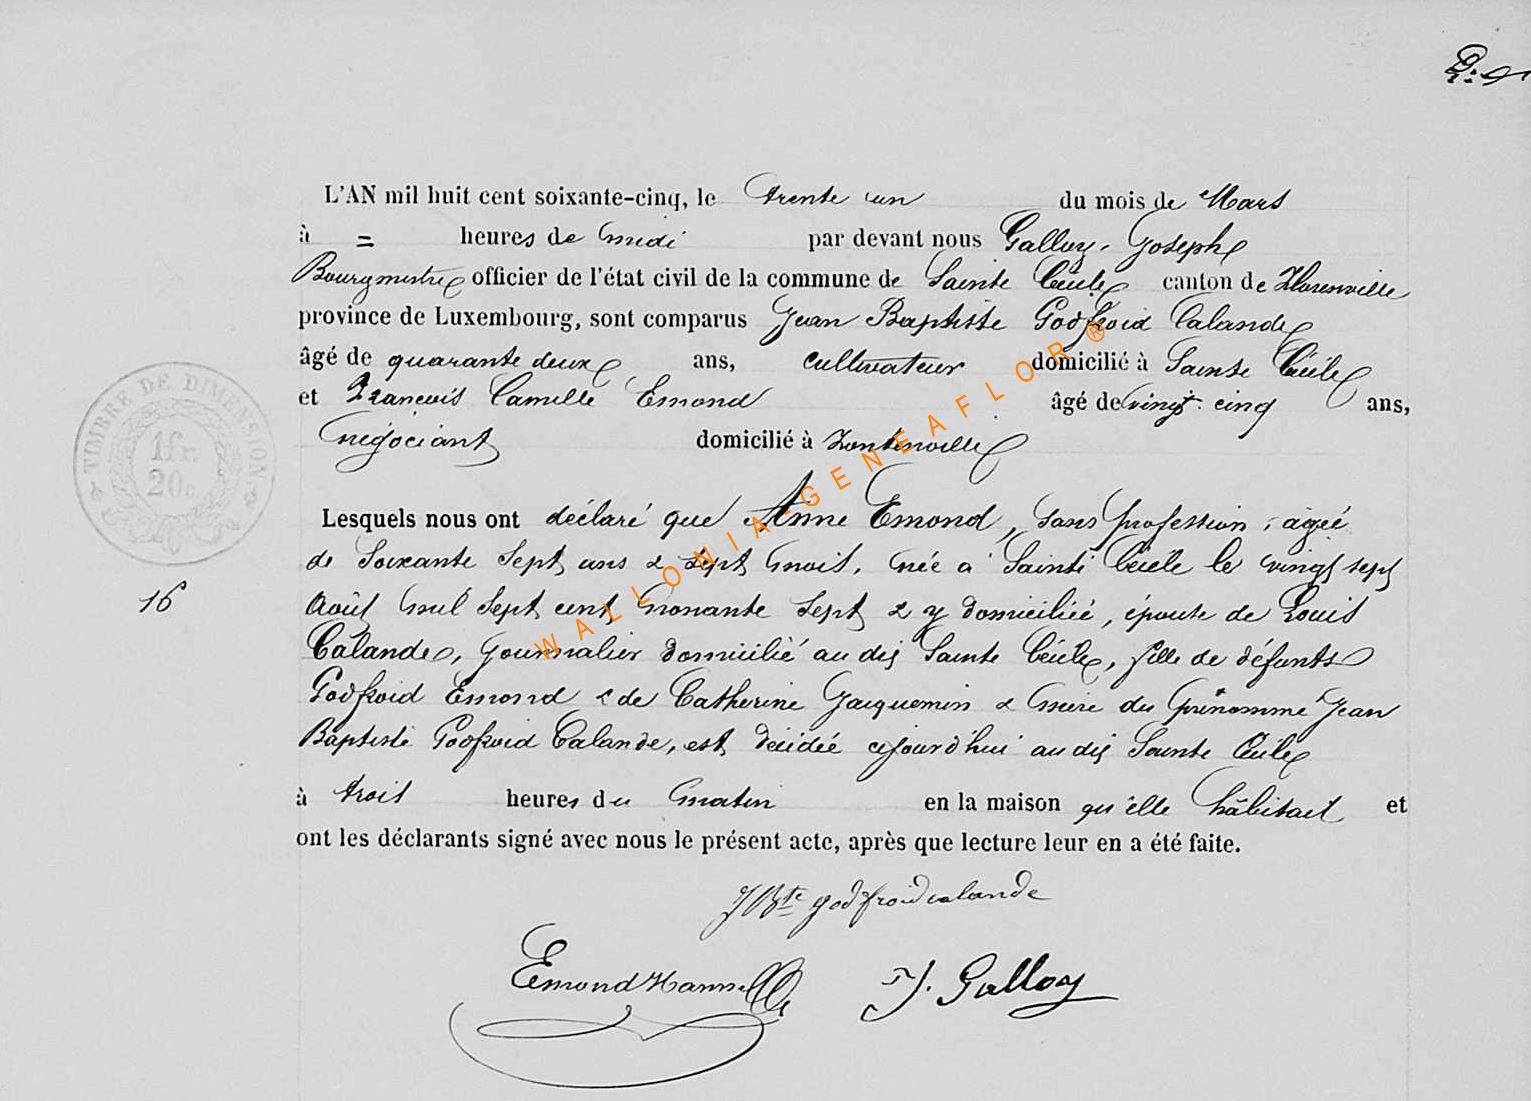 L'AN mil huit cent soixante-cinq, le trente un du mois de Mars
à = heures de midi par devant nous Galloy, Joseph
Bourgmestre officier de l'état civil de la commune de Sainte Cécile canton de Florenville
province de Luxembourg, sont comparus Jean Baptiste Godfroid Calande
âgé de quarante deux ans, cultivateur domicilié à Sainte Cécile
et François Camille Emond âgé de vingt-cinq ans,
négociant domicilié à Fontenoille
Lesquels nous ont déclaré que Anne Emond, sans profession, âgée
de Soixante Sept ans & sept mois, née à Sainte Cécile le vingt sept
Août mil sept cent nonante sept & y domiciliée, épouse de Louis
Calande, journalier domicilié au dit Sainte Cécile, fille de défunts
Godfroid Emond & de Catherine Jacquemin & mère du prénommé Jean
Baptiste Godfroid Calande, est décédée cejourd'hui au dit Sainte Cécile
à trois heures du matin en la maison qu'elle habitait et
ont les déclarants signé avec nous le présent acte, après que lecture leur en a été faite.
JBte godfroid calande
Emond J. Galloy
16
TIMBRE DE DIMENSION
1 fr.
20 c.
WALLONIA-GENEAFLOR®